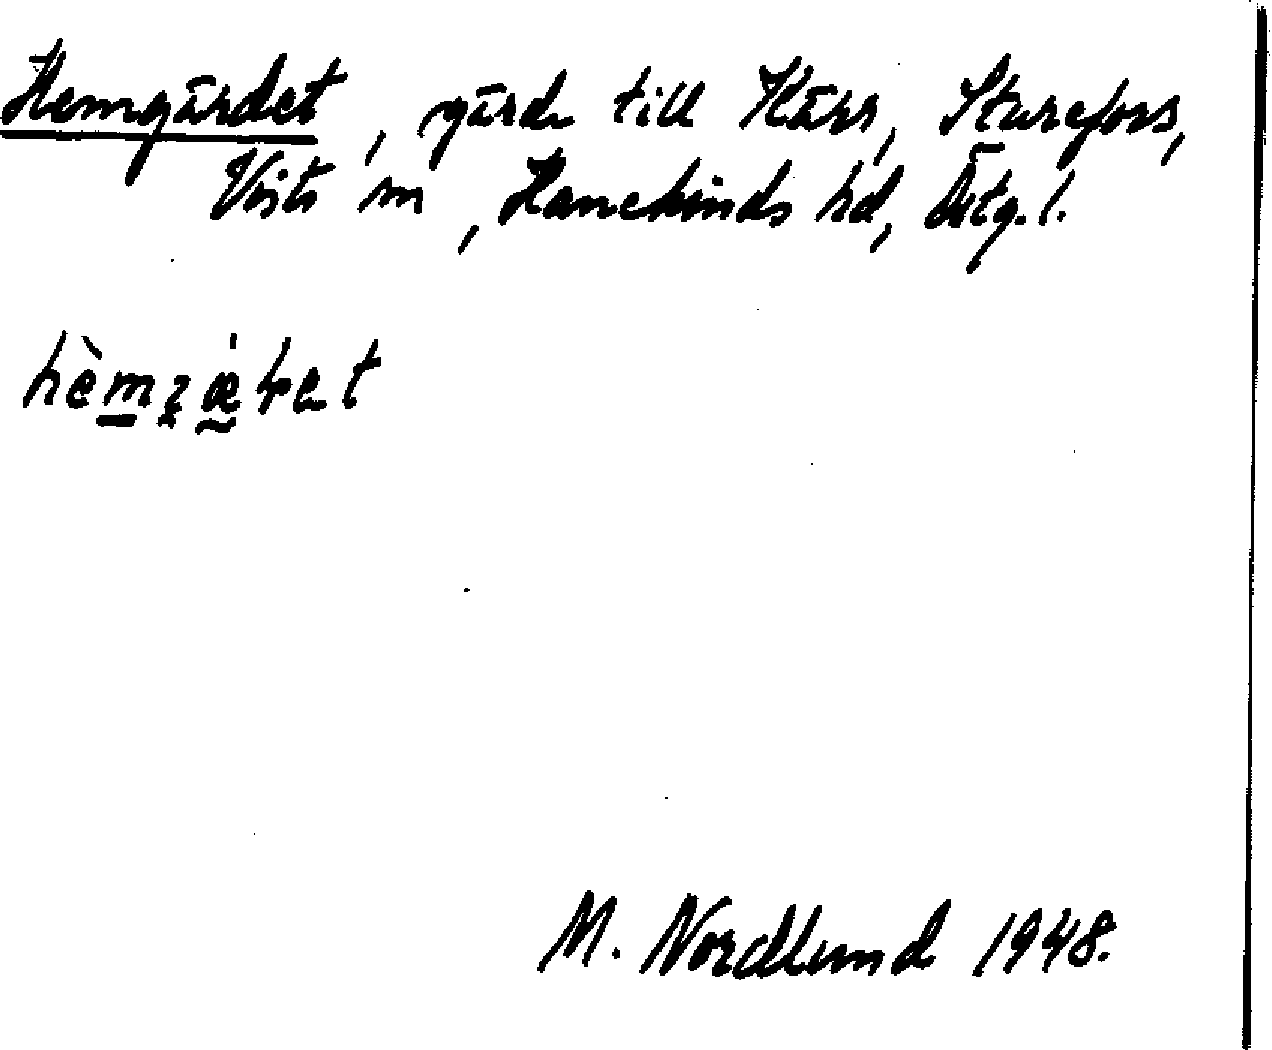 Hemgärdet, gärde till Kärr, Sturefors,
Vists sn, Hanekinds hd, Östg. l.
M. Nordlund 1948.